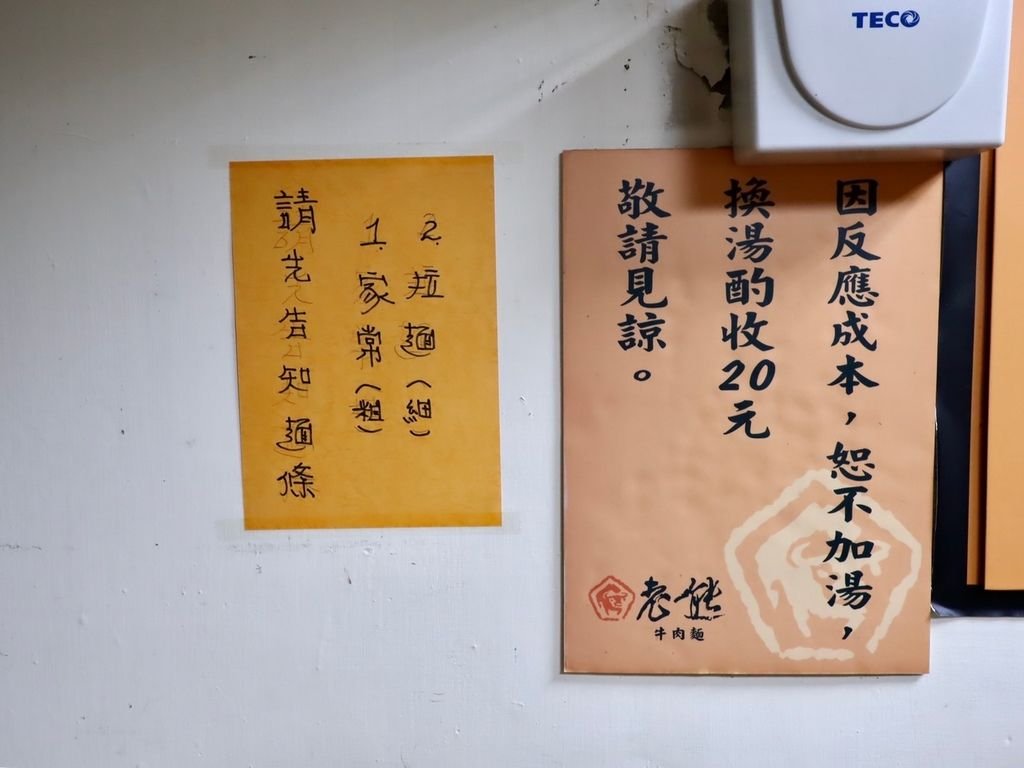 TECO
因反應成本，恕不加湯，
換湯酌收20元
敬請見諒。
老熊
牛肉麵
請先告知麵條
1. 家常（粗）
2. 拉麵（細）